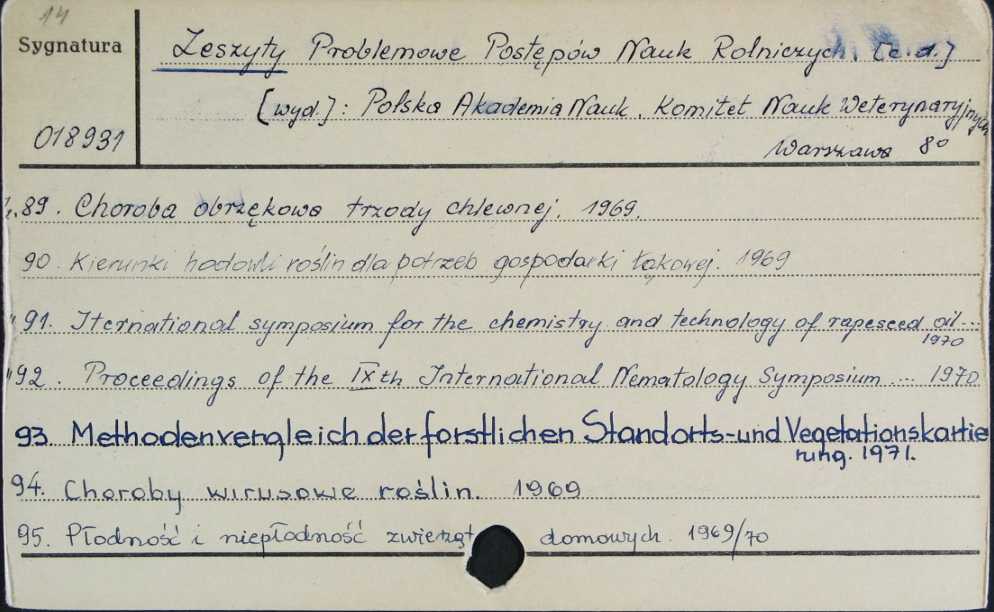 14
Sygnatura
Zeszyty Problemowe Postępów Nauk Rolniczych. [c.d.]
[wyd.]: Polska Akademia Nauk. Komitet Nauk Weterynaryjnych
018931
Warszawa 8o
89. Choroba obrzękowa trzody chlewnej. 1969.
90. Kierunki hodowli roślin dla potrzeb gospodarki łąkowej. 1969
91. Iternational symposium for the chemistry and technology of rapeseed oil...
1970
92. Proceedings of the IXth International Nematology Symposium ... 1970
93. Methodenvergleich der forstlichen Standorts- und Vegetationskartie
rung. 1971.
94. Choroby wirusowe roślin. 1969
95. Płodność i niepłodność zwierząt domowych. 1969/70